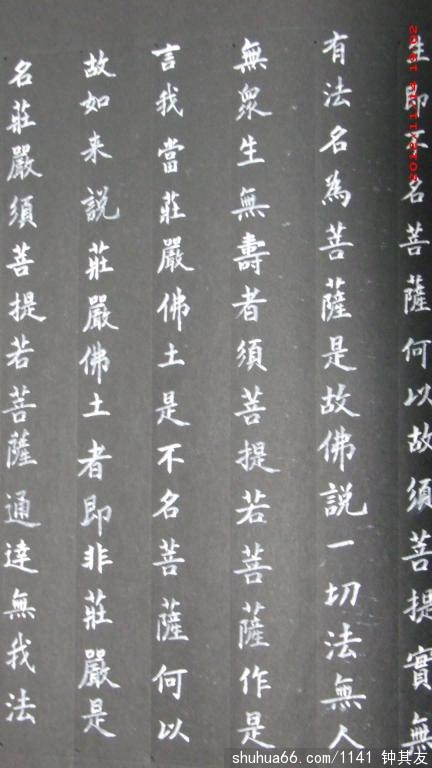 生即不名菩薩何以故須菩提實無
有法名為菩薩是故佛說一切法無人
無眾生無壽者須菩提若菩薩作是
言我當莊嚴佛土是不名菩薩何以
故如来說莊嚴佛土者即非莊嚴是
名莊嚴須菩提若菩薩通達無我法
shuhua66.com/1141 钟其友